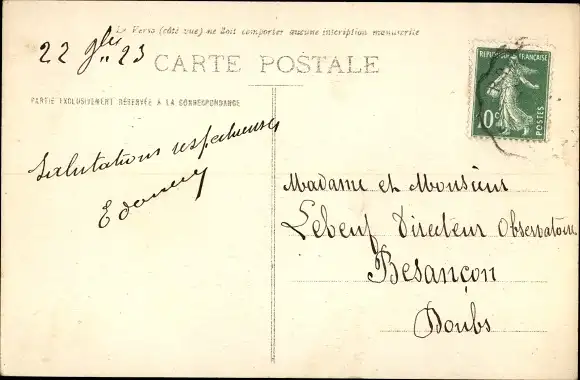 Le Verso (côté vue) ne doit comporter aucune inscription manuscrite
22 9bre 23
CARTE POSTALE
PARTIE EXCLUSIVEMENT RÉSERVÉE À LA CORRESPONDANCE
Salutations respectueuses
REPUBLIQUE FRANÇAISE
10c
POSTES
Madame et Monsieur
Lebeuf Directeur Observatoire
Besançon
Doubs